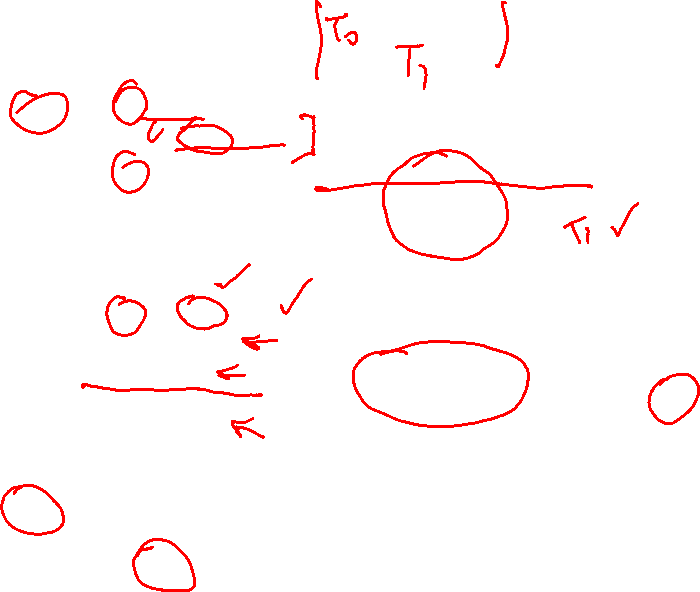 T0
T1
T1